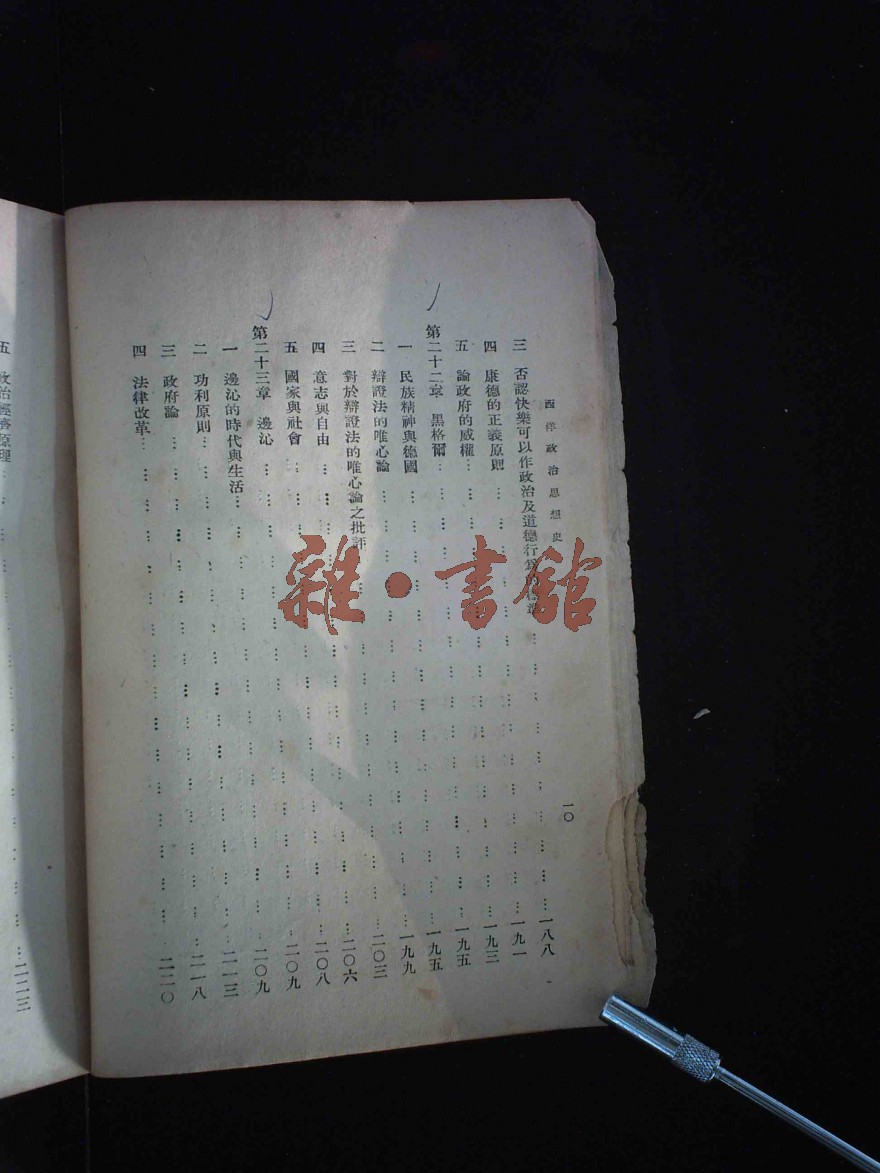 西洋政治思想史 一〇
三 否認快樂可以作政治及道德行為的 …… 一八八
四 康德的正義原則 …… 一九一
五 論政府的威權 …… 一九三
第二十二章 黑格爾 …… 一九五
一 民族精神與德國 …… 一九五
二 辯證法的唯心論 …… 一九九
三 對於辯證法的唯心論之批評 …… 二〇三
四 意志與自由 …… 二〇六
五 國家與社會 …… 二〇八
第二十三章 邊沁 …… 二〇九
一 邊沁的時代與生活 …… 二〇九
二 功利原則 …… 二一三
三 政府論 …… 二一八
四 法律改革 …… 二二〇
五 政治經濟原理 …… 二二三
雜·書館